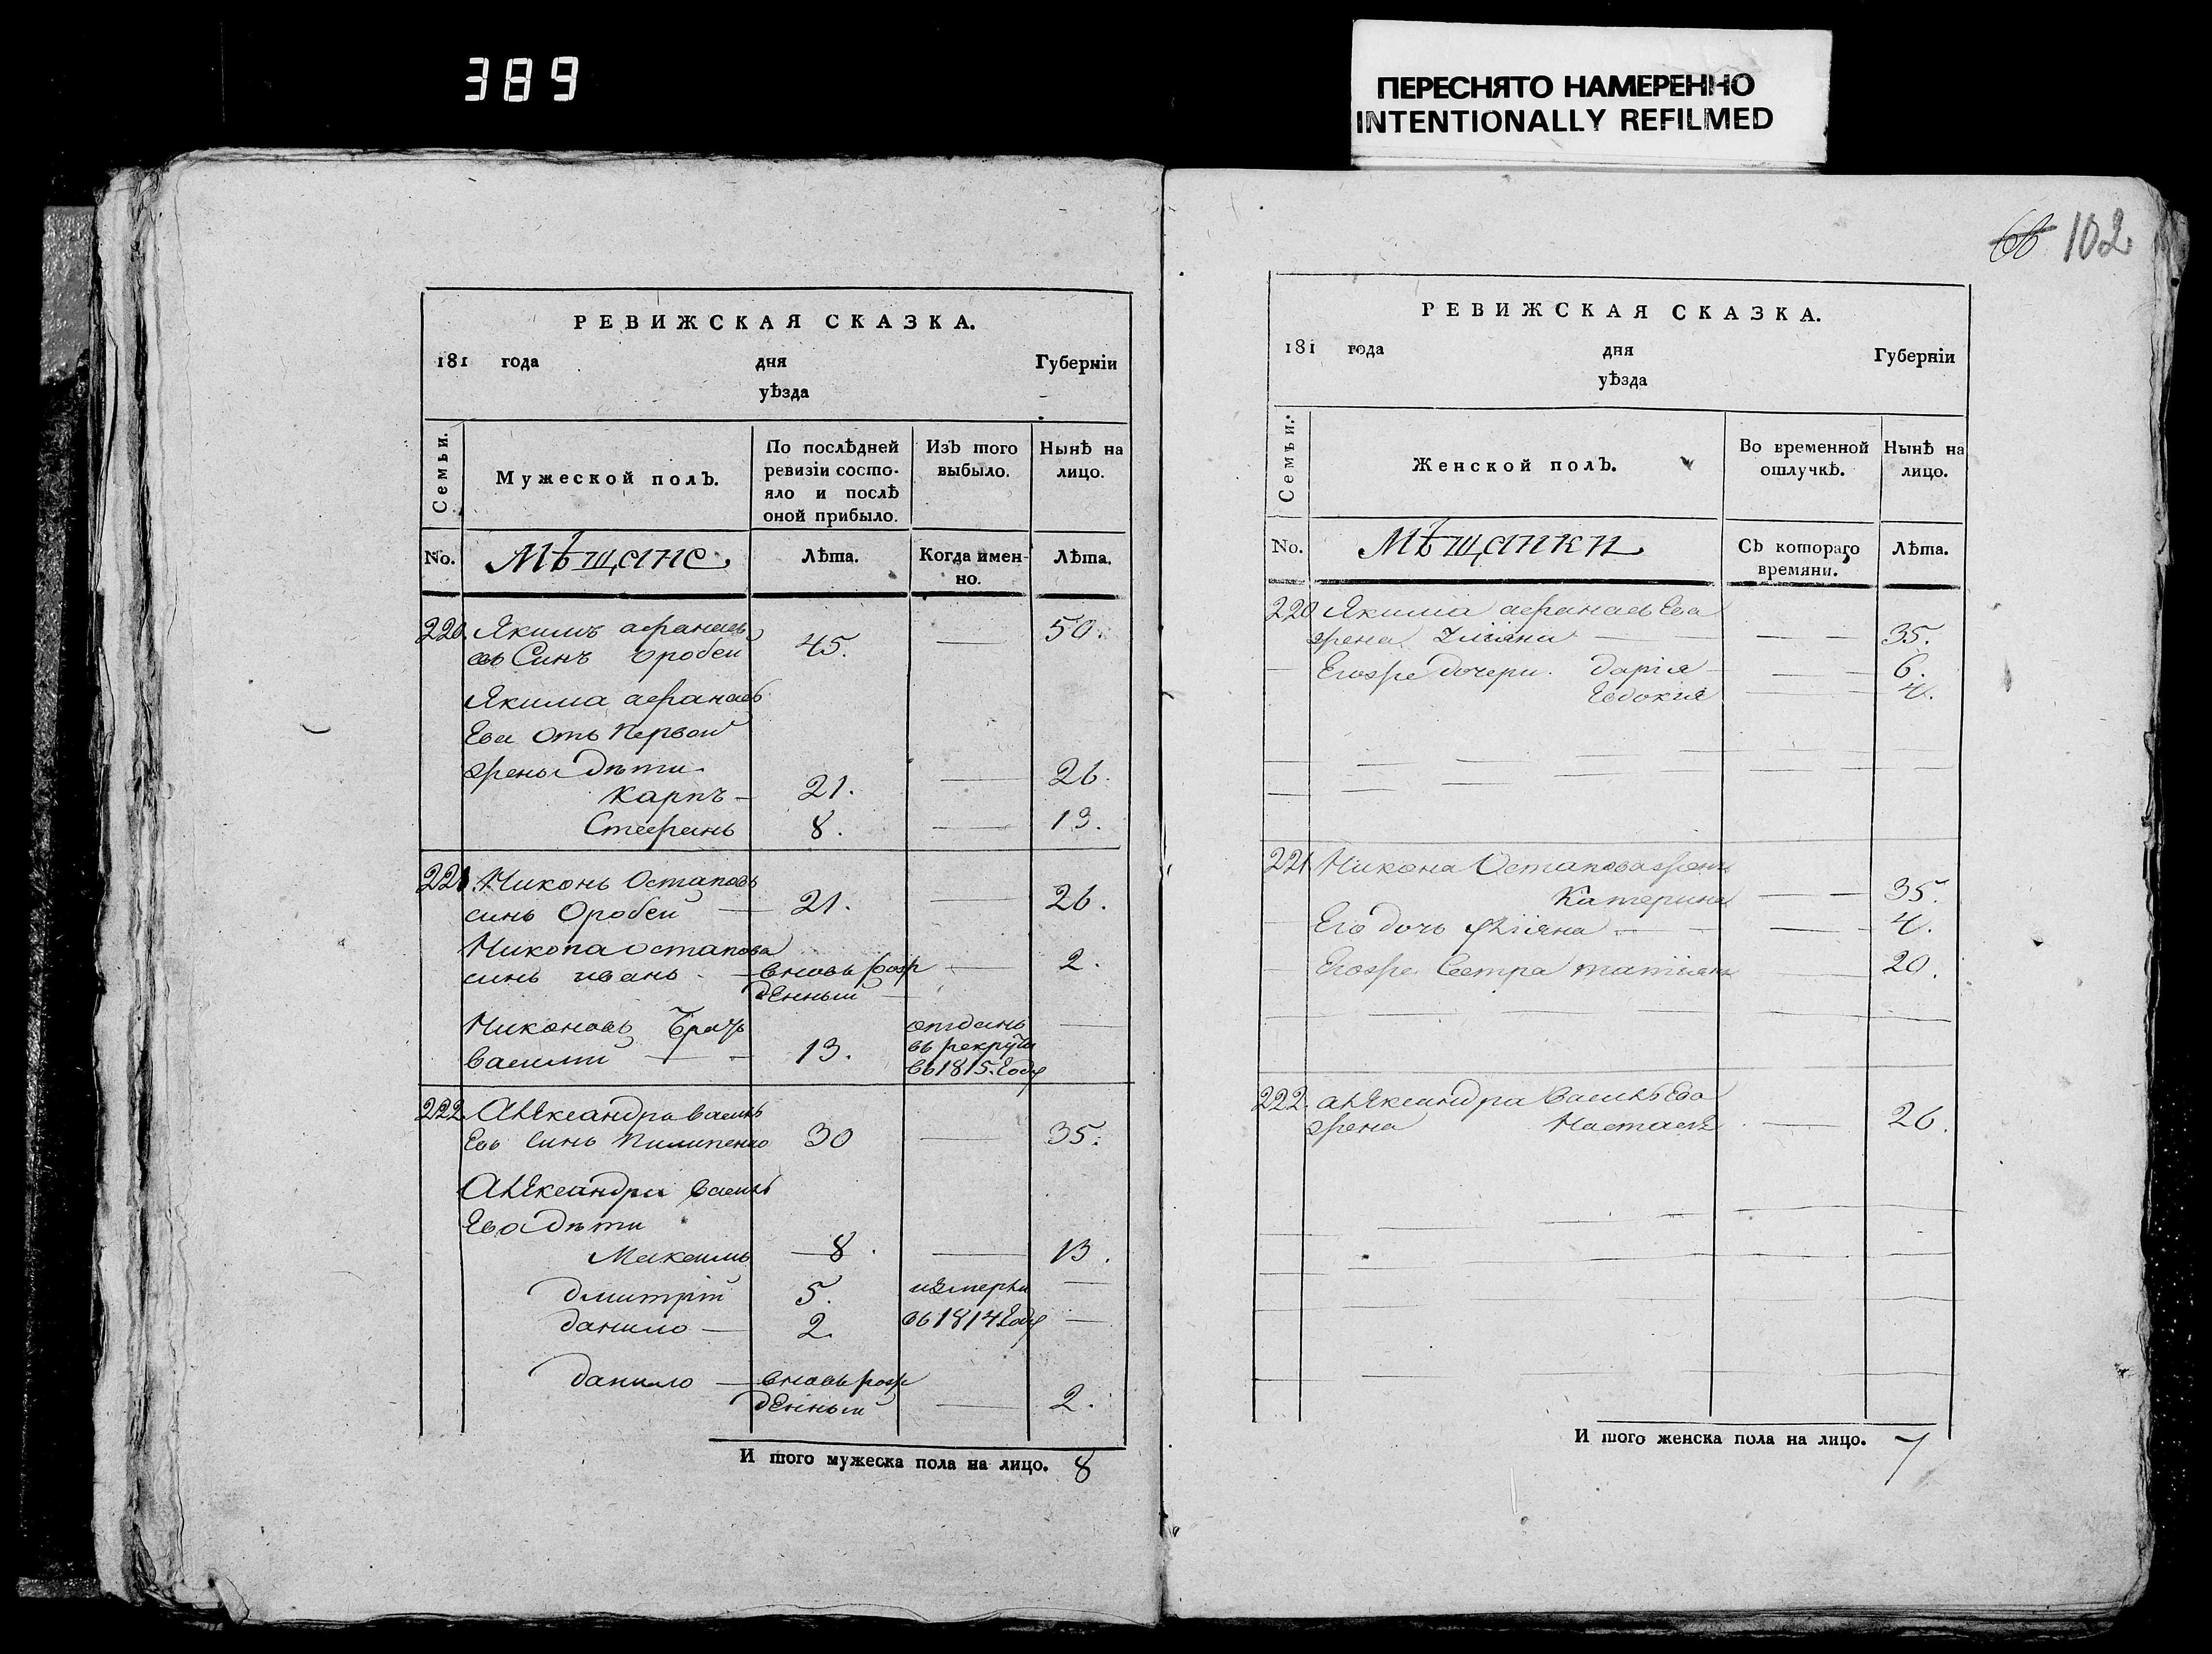 389
ПЕРЕСНЯТО НАМЕРЕННО
INTENTIONALLY REFILMED
102
РЕВИЖСКАЯ СКАЗКА.
181 года дня Губерніи
уѣзда
Семьи.
Мужеской полъ.
По послѣдней ревизіи состо-
яло и послѣ оной прибыло.
Изъ того выбыло.
Нынѣ на лицо.
No. Мѣщане Лѣта. Когда имен-
но. Лѣта.
220. Якимъ афанась
евъ Синъ Оробей 45. 50.
Якима афанась
Ева Отъ Первой
жены Дѣти
Карпъ 21. 26.
Стефанъ 8. 13.
221. Никонъ Остаповъ
синъ Оробей 21. 26.
Никона Остапова
синъ иванъ вновь рож
денный 2.
Никоновъ Братъ
василий 13. отданъ
въ рекруты
въ 1815. Году
222. Александра василь
Евъ Синъ Пилипенко 30 35.
Александра василь
Ева Дѣти
Максимъ 8. 13.
Дмитрій 5. измерли
данило 2. въ 1814 Году
данило вновь рож
денный 2.
И того мужеска пола на лицо. 8
РЕВИЖСКАЯ СКАЗКА.
181 года дня Губерніи
уѣзда
Семьи.
Женской полъ.
Во временной отлучкѣ.
Нынѣ на лицо.
No. Мѣщанки Съ котораго
времяни. Лѣта.
220 Якима афанасьЕва
жена 35.
Егожъ дочери. дарія 6.
Евдокія 4.
221. Никона Остапова жена
Катерина 35.
Его дочь 4.
Егожъ Сестра 20.
222. александра ВасильЕва
жена Настася 26.
И того женска пола на лицо. 7